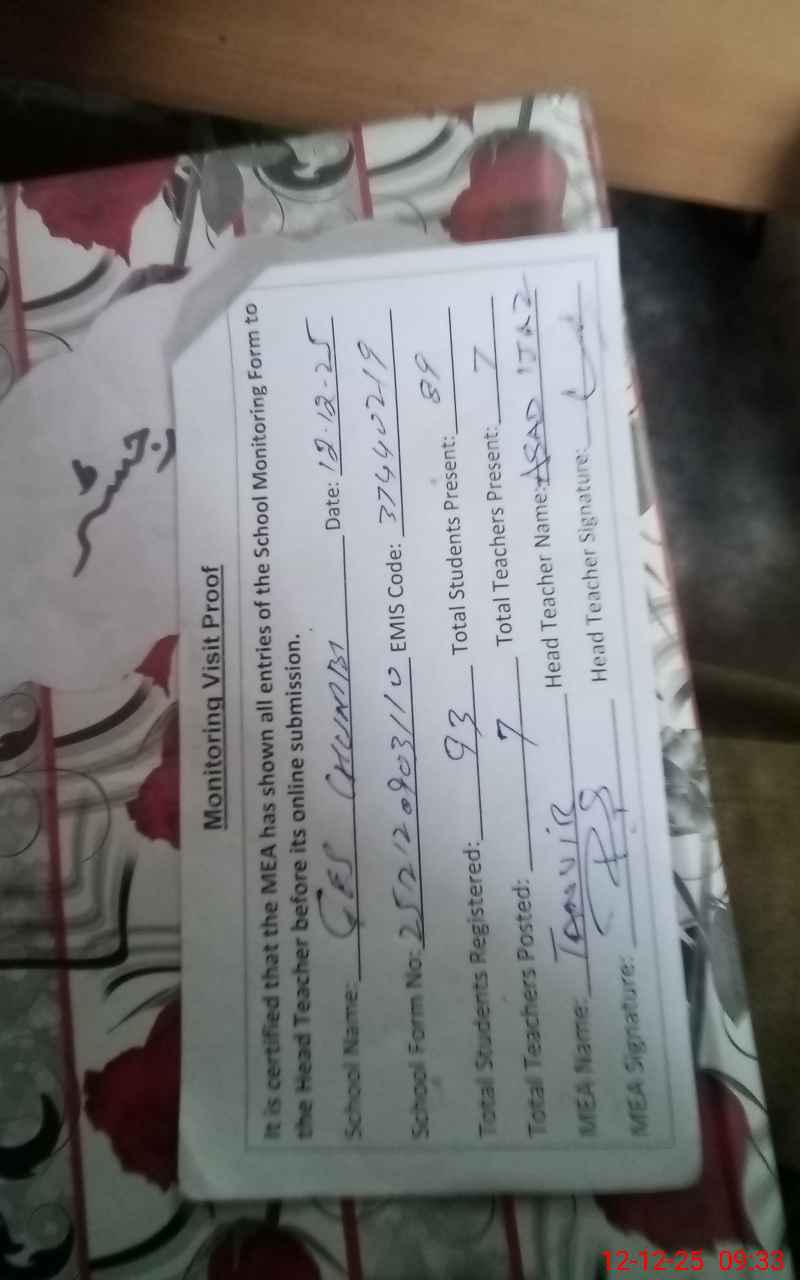 Monitoring Visit Proof
It is certified that the MEA has shown all entries of the School Monitoring Form to
the Head Teacher before its online submission.
School Name: GES CHUMBI Date: 12-12-25
School Form No: 2512120903110 EMIS Code: 37440219
Total Students Registered: 93 Total Students Present: 89
Total Teachers Posted: 7 Total Teachers Present: 7
MEA Name: TANVIR Head Teacher Name: ASAD IJAZ
MEA Signature: Head Teacher Signature:
12-12-25 09:33